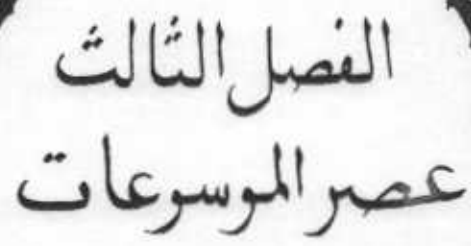 الفصل الثالث
عصر الموسوعات